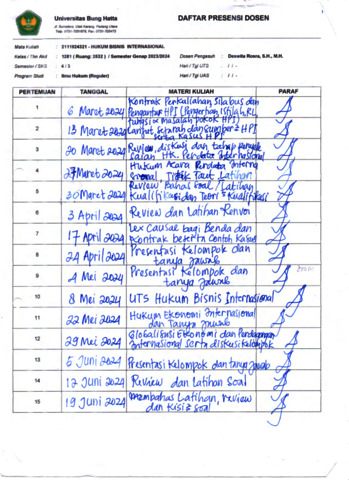 Universitas Bung Hatta
DAFTAR PRESENSI DOSEN
Jl. Sumatera Ulak Karang, Padang Utara
Mata Kuliah : 2111024321 - HUKUM BISNIS INTERNASIONAL
Kelas / Thn Akd : 1281 ( Ruang: 2B32 ) / Semester Genap 2023/2024
Dosen Pengasuh : Deswita Rosra, S.H., M.H.
Semester / SKS : 4 / 3
Hari / Tgl UTS : / / -
Program Studi : Ilmu Hukum (Reguler)
Hari / Tgl UAS : / / -
PERTEMUAN TANGGAL MATERI KULIAH PARAF
1 6 Maret 2024 Kontrak Perkuliahan, silabus dan
Pengantar HPI (Pengertian, Istilah, RL,
fungsi & masalah pokok HPI)
2 13 Maret 2024 Lanjut sejarah dan sumber2 HPI
serta kasus HPI
3 20 Maret 2024 Review, diskusi dan tahap
Hk. Perdata Internasional
4 27 Maret 2024 Hukum Acara Perdata Interna
sional, Titik Taut, Latihan
5 30 Maret 2024 Review/Bahas soal/Latihan
Kualifikasi dan Teori2 Kualifikasi
6 3 April 2024 Review dan Latihan Renvoi
7 17 April 2024 Lex Causae bagi Benda dan
Kontrak beserta Contoh Kasus
8 24 April 2024 Presentasi Kelompok dan
tanya jawab
9 4 Mei 2024 Presentasi Kelompok dan
tanya jawab
10 8 Mei 2024 UTS Hukum Bisnis Internasional
11 22 Mei 2024 Hukum Ekonomi Internasional
dan Tanya Jawab
12 29 Mei 2024 Globalisasi Ekonomi dan Perdagangan
Internasional serta diskusi kelompok
13 5 Juni 2024 Presentasi Kelompok dan tanya jawab
14 12 Juni 2024 Review dan latihan Soal
15 19 Juni 2024 Membahas Latihan, review
dan kisi2 soal